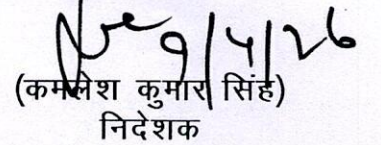 9/4/26
(कमलेश कुमार सिंह)
निदेशक